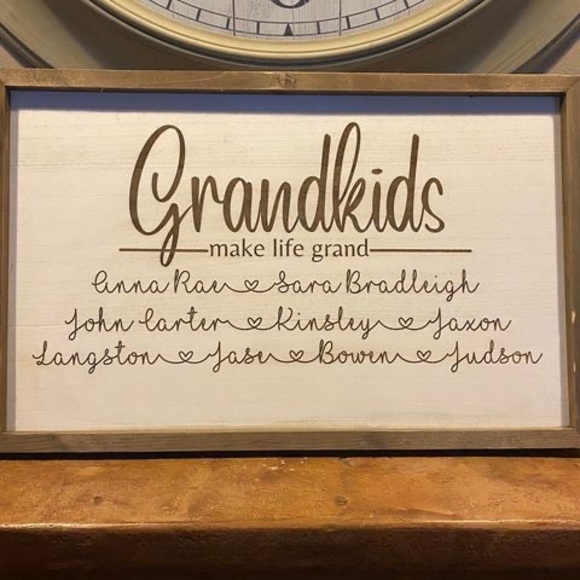 Grandkids
make life grand
Anna Rae Sara Bradleigh
John Carter Kinsley Jaxon
Langston Jase Bowen Judson